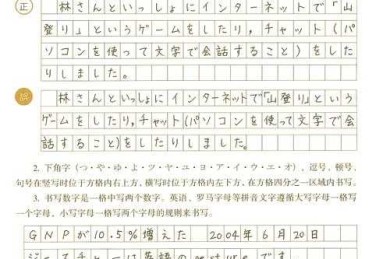 正
林さんといっしょにインターネットで「山
登り」というゲームをしたり，チャット（パ
ソコンを使って文字で会話すること）をした
りしました。
林さんといっしょにインターネットで「山登り」という
ゲームをしたり，チャット（パソコンを使って文字で会
話すること）をしたりしました。
2. 下角字（つ・や・ゆ・よ・ツ・ヤ・ユ・ヨ・ア・イ・ウ・エ・オ）、逗号、顿号、
句号在竖写时位于方格内右上方，横写时位于方格内左下方，在方格四分之一区域内书写。
3. 书写数字是一格中写两个数字。英语、罗马字母等拼音文字遵循大写字母一格写
一个字母，小写字母一格写两个字母的规则来书写。
GNPが10.5%増えた 2004年6月20日